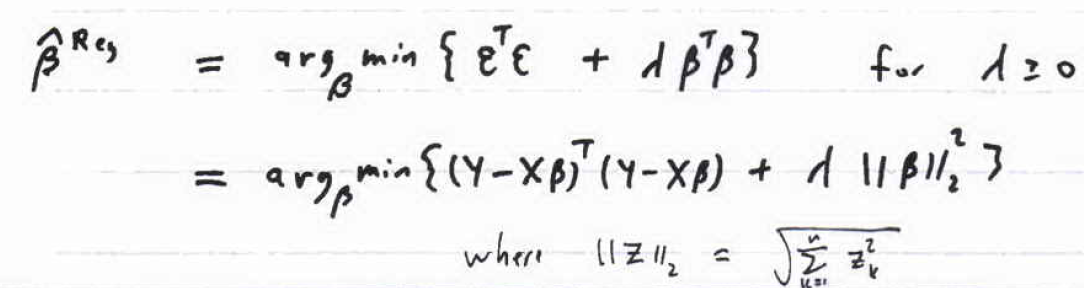 β̂^Reg = arg_β min { ε^T ε + λ β^T β } for λ ≥ 0
= arg_β min { (Y - Xβ)^T (Y - Xβ) + λ ||β||_2^2 }
where ||z||_2 = √(∑_{k=1}^{n} z_k^2)